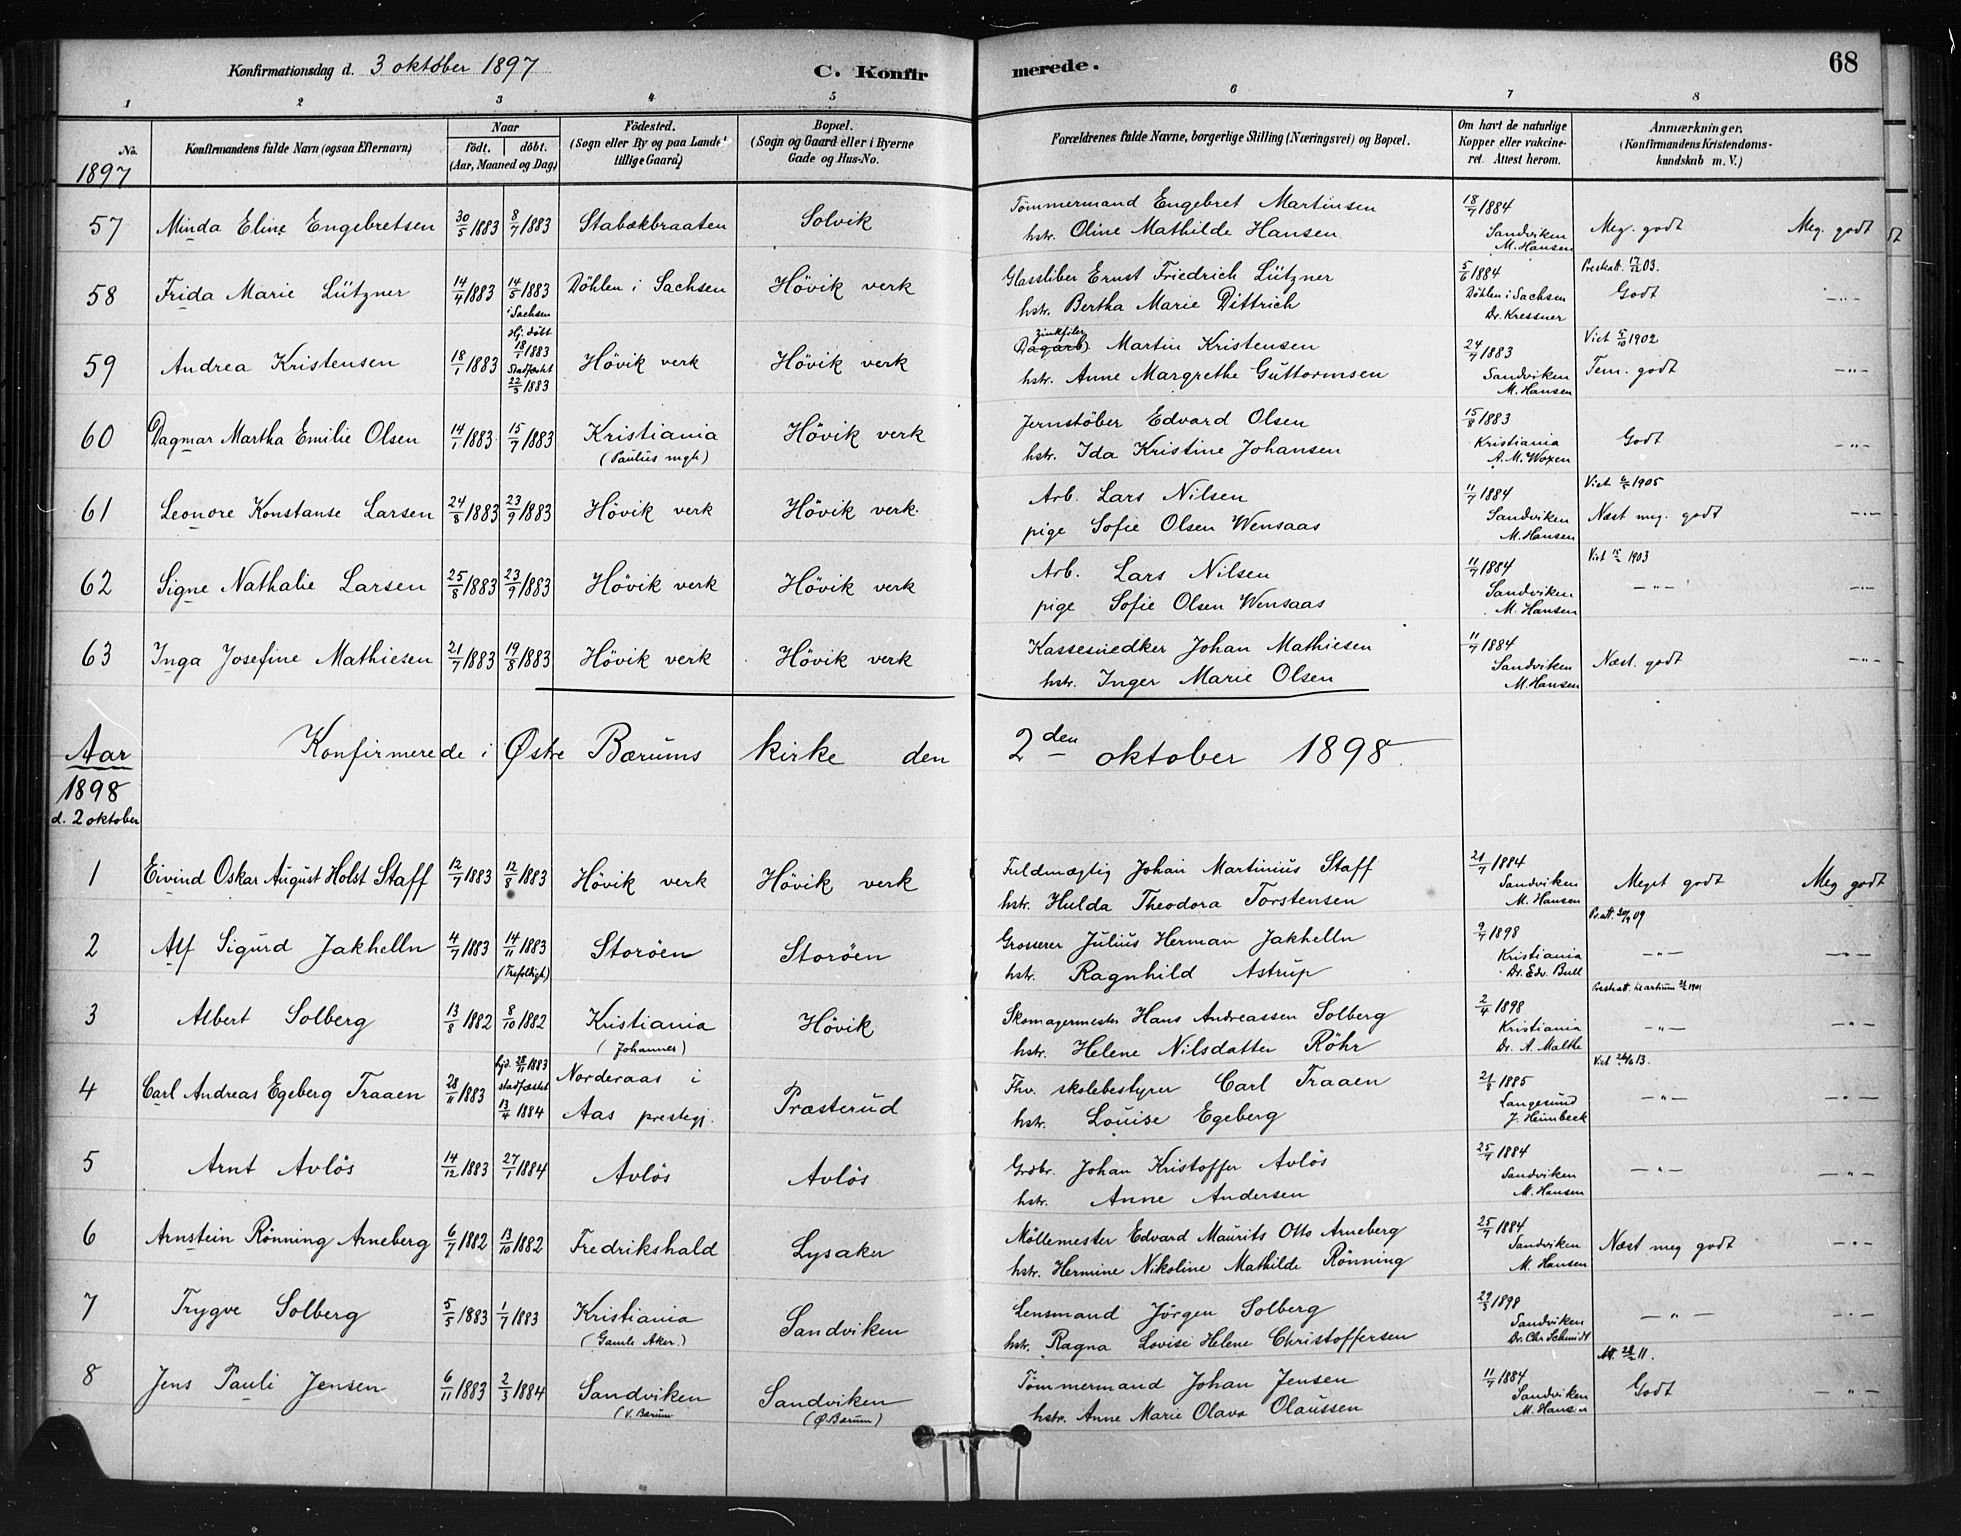 Konfirmationsdag d. 3 oktober 1897 C. Konfirmerede. 68
1 2 3 4 5 6 7 8
No. Konfirmandens fulde Navn (ogsaa Efternavn) Naar födt. döbt. (Aar, Maaned og Dag) Födested. (Sogn eller By og paa Landet tillige Gaard) Bopæl. (Sogn og Gaard eller i Byerne Gade og Hus-No. Forældrenes fulde Navne, borgerlige Stilling (Næringsvei) og Bopæl. Om havt de naturlige Kopper eller vakcineret. Attest herom. Anmærkninger. (Konfirmandens Kristendomskundskab m. V.)
1897
57 Minda Eline Engebretsen 30/5 1883 8/7 1883 Stabækbraaten Solvik Tömmermand Engebret Martinsen 18/7 1884 Meg. godt Meg. godt
hstr. Oline Mathilde Hansen Sandviken M. Hansen
58 Frida Marie Lützner 14/4 1883 14/5 1883 i Sachsen Döhlen i Sachsen Hövik verk Glassliber Ernst Friedrich Lützner 5/6 1884 Prestatt. 17/12 03. Godt -"-
hstr. Bertha Marie Dittrich Döhlen i Sachsen Dr. Kressner
59 Andrea Kristensen 18/1 1883 Hj. döbt 18/1 1883 Stadfæstet 22/3 1883 Hövik verk Hövik verk zinkfiler Dagarb. Martin Kristensen 24/7 1883 Tem. godt -"-
hstr. Anne Margrethe Guttormsen Sandviken M. Hansen
60 Dagmar Martha Emilie Olsen 14/1 1883 15/7 1883 Kristiania Hövik verk Jernstöber Edvard Olsen 15/8 1883 Godt -"-
(Paulus mgh) hstr. Ida Kristine Johansen Kristiania A. M. Woxen
61 Leonore Konstanse Larsen 24/8 1883 23/9 1883 Hövik verk Hövik verk. Arb. Lars Nilsen 11/7 1884 Næst meg. godt -"-
pige Sofie Olsen Wensaas Sandviken M. Hansen
62 Signe Nathalie Larsen 25/8 1883 23/9 1883 Hövik verk Hövik verk Arb. Lars Nilsen 11/7 1884 -"- -"-
pige Sofie Olsen Wensaas Sandviken M. Hansen
63 Inga Josefine Mathiesen 21/7 1883 19/8 1883 Hövik verk Hövik verk Kassesnedker Johan Mathiesen 11/7 1884 Næst. godt -"-
hstr. Inger Marie Olsen Sandviken M. Hansen
Aar 1898 d. 2 oktober
Konfirmerede i Østre Bærums kirke den 2den oktober 1898.
1 Eivind Oskar August Holst Staff 12/7 1883 12/8 1883 Hövik verk Hövik verk Fuldmægtig Johan Martinius Staff 21/7 1884 Meget godt Meg godt
hstr. Hulda Theodora Torstensen Sandviken M. Hansen
2 Alf Sigurd Jakhelln 4/7 1883 14/11 1883 (Trefoldigh) Storöen Storöen Grosserer Julius Herman Jakhelln 9/7 1898 -"- -"-
hstr. Ragnhild Astrup Kristiania Dr. Edv. Bull
3 Albert Solberg 13/8 1882 8/10 1882 Kristiania Hövik Skomagermester Hans Andreassen Solberg 2/4 1898 -"- -"-
(Johannes) hstr. Helene Nilsdatter Röhr Kristiania Dr. A. Malthe
4 Carl Andreas Egeberg Traaen 28/11 1883 stadfæstet 13/4 1884 Norderaas i Aas prestegj. Præsterud Fhv. skolebestyrer Carl Traaen 21/8 1885 -"- -"-
hstr. Louise Egeberg Langesund J. Heimbeck
5 Arnt Avlös 14/12 1883 27/1 1884 Avlös Avlös Grdbr. Johan Kristoffer Avlös 25/7 1884 -"- -"-
hstr. Anne Andersen Sandviken M. Hansen
6 Arnstein Rönning Arneberg 6/7 1882 13/10 1882 Fredrikshald Lysaker Möllemester Edvard Maurits Otto Arneberg 25/7 1884 Næst meg godt -"-
hstr. Hermine Nikoline Mathilde Rönning Sandviken M. Hansen
7 Trygve Solberg 5/5 1883 1/7 1883 Kristiania Sandviken Lensmand Jörgen Solberg 29/3 1898 -"- -"-
(Gamle Aker.) hstr. Ragna Lovise Helene Christoffersen Sandviken Dr. Chr Schmidt
8 Jens Pauli Jensen 6/11 1883 2/3 1884 Sandviken Sandviken Tömmermand Johan Jensen 11/7 1884 Godt -"-
(V. Bærum (Ø. Bærum) hstr. Anne Marie Olava Olaussen Sandviken M. Hansen